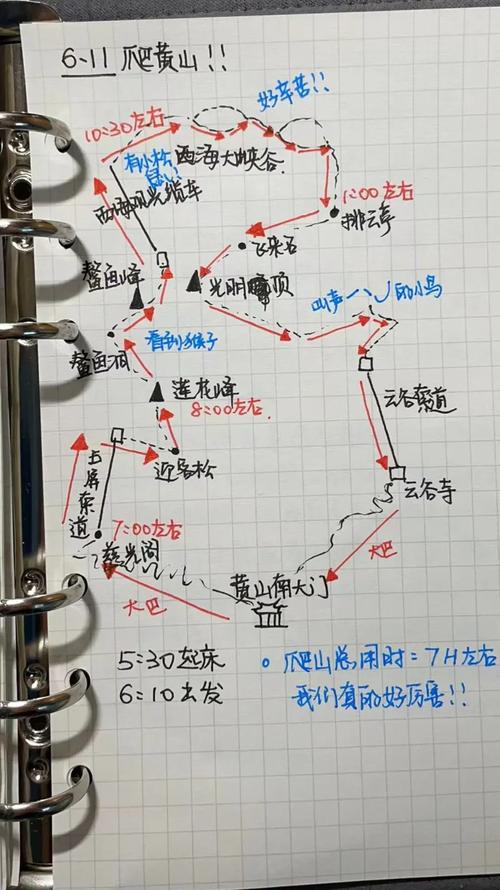 6-11 爬黄山!!
好辛苦!!
10:30左右
有小松鼠!!
西海大峡谷
西海观光缆车
1:00左右
排云亭
飞来石
光明顶
鳌鱼峰
叫声
的小鸟
鳌鱼洞
看到猴子
莲花峰
8:00左右
云谷索道
迎客松
玉屏索道
云谷寺
7:00左右
慈光阁
大巴
大巴
黄山南大门
5:30起床
6:10出发
爬山总用时:7H左右
我们真的好厉害!!